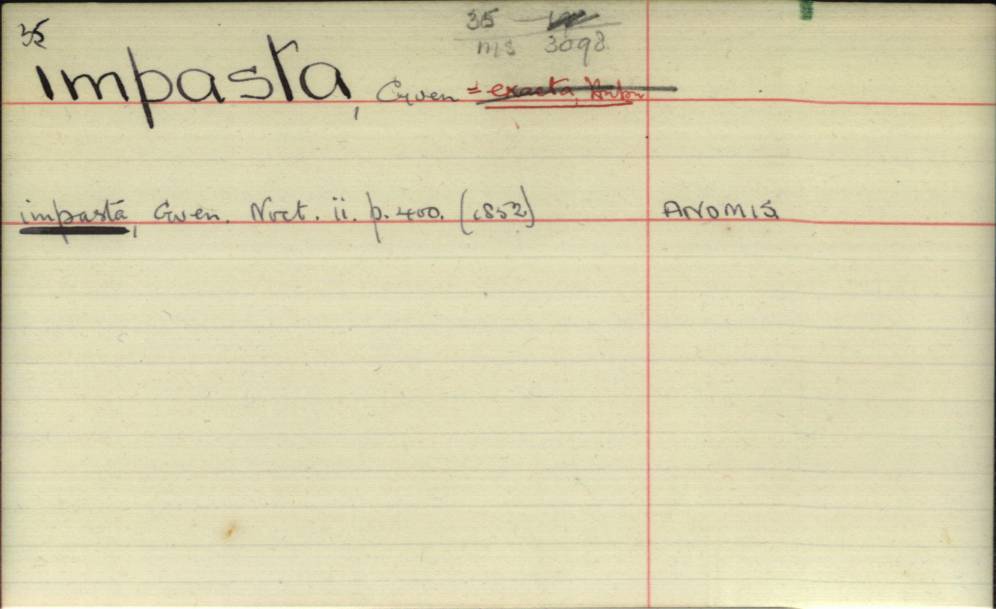 35
35
ms 3098
impasta, Guen = exacta, Hübn
impasta, Guen. Noct. ii. p. 400. (1852) ANOMIS